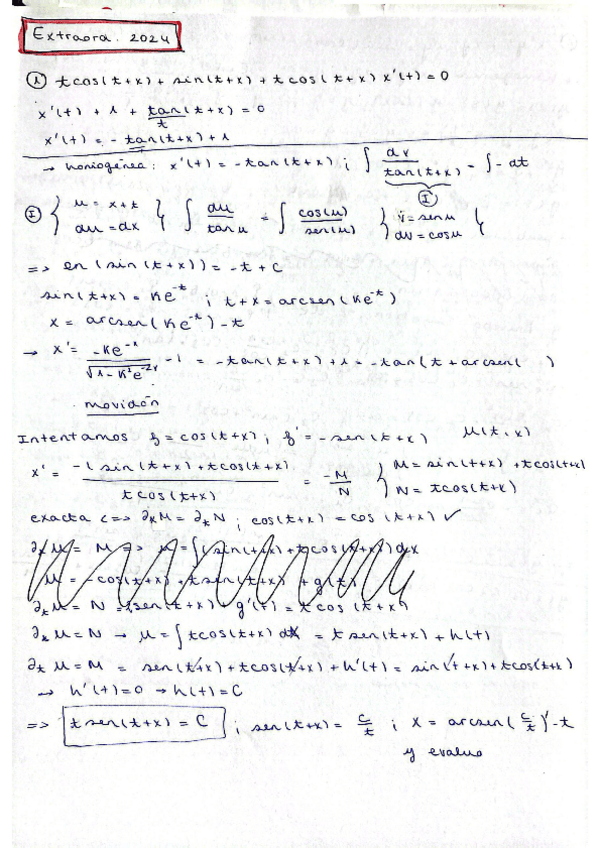 Extraora. 2024
① tcos(t+x) + sin(t+x) + tcos(t+x) x'(t) = 0
x'(t) + 1 + tan(t+x)/t = 0
x'(t) = - tan(t+x)/t + 1
→ homogénea: x'(t) = -tan(t+x) ; ∫ dx/tan(t+x) = ∫ -dt
Ⓘ
Ⓘ { u = x+t du = dx } ∫ du/tan u = ∫ cos(u)/sen(u) } v = sen u dv = cos u {
=> en (sin(t+x)) = -t + C
sin(t+x) = Ke^-t ; t+x = arcsen(Ke^-t)
x = arcsen(Ke^-t) - t
→ x' = -Ke^-x/√(1-K²e^-2x) - 1 = -tan(t+x) + 1 = -tan(t + arcsen( )
movidón
Intentamos z = cos(t+x) ; z' = -sen(t+x) μ(t,x)
x' = -( sin(t+x) + tcos(t+x) / tcos(t+x) = -M/N } M = sin(t+x) + tcos(t+x) N = tcos(t+x)
exacta <=> ∂xM = ∂tN ; cos(t+x) = cos(t+x) ✓
∂t μ = M => μ = ∫(sin(t+x) + tcos(t+x)) dx
μ = -cos(t+x) + tsen(t+x) + g(t)
∂x μ = N = sen(t+x) + g'(t) = tcos(t+x)
∂x μ = N → μ = ∫ tcos(t+x) dx = tsen(t+x) + h(t)
∂t μ = M = sen(t+x) + tcos(t+x) + h'(t) = sin(t+x) + tcos(t+x)
→ h'(t) = 0 → h(t) = C
=> tsen(t+x) = C ; sen(t+x) = C/t ; x = arcsen(C/t) - t
y evaluo